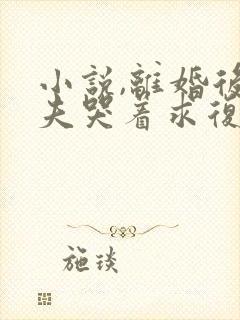 小說,離婚後
夫哭着求復
施琰